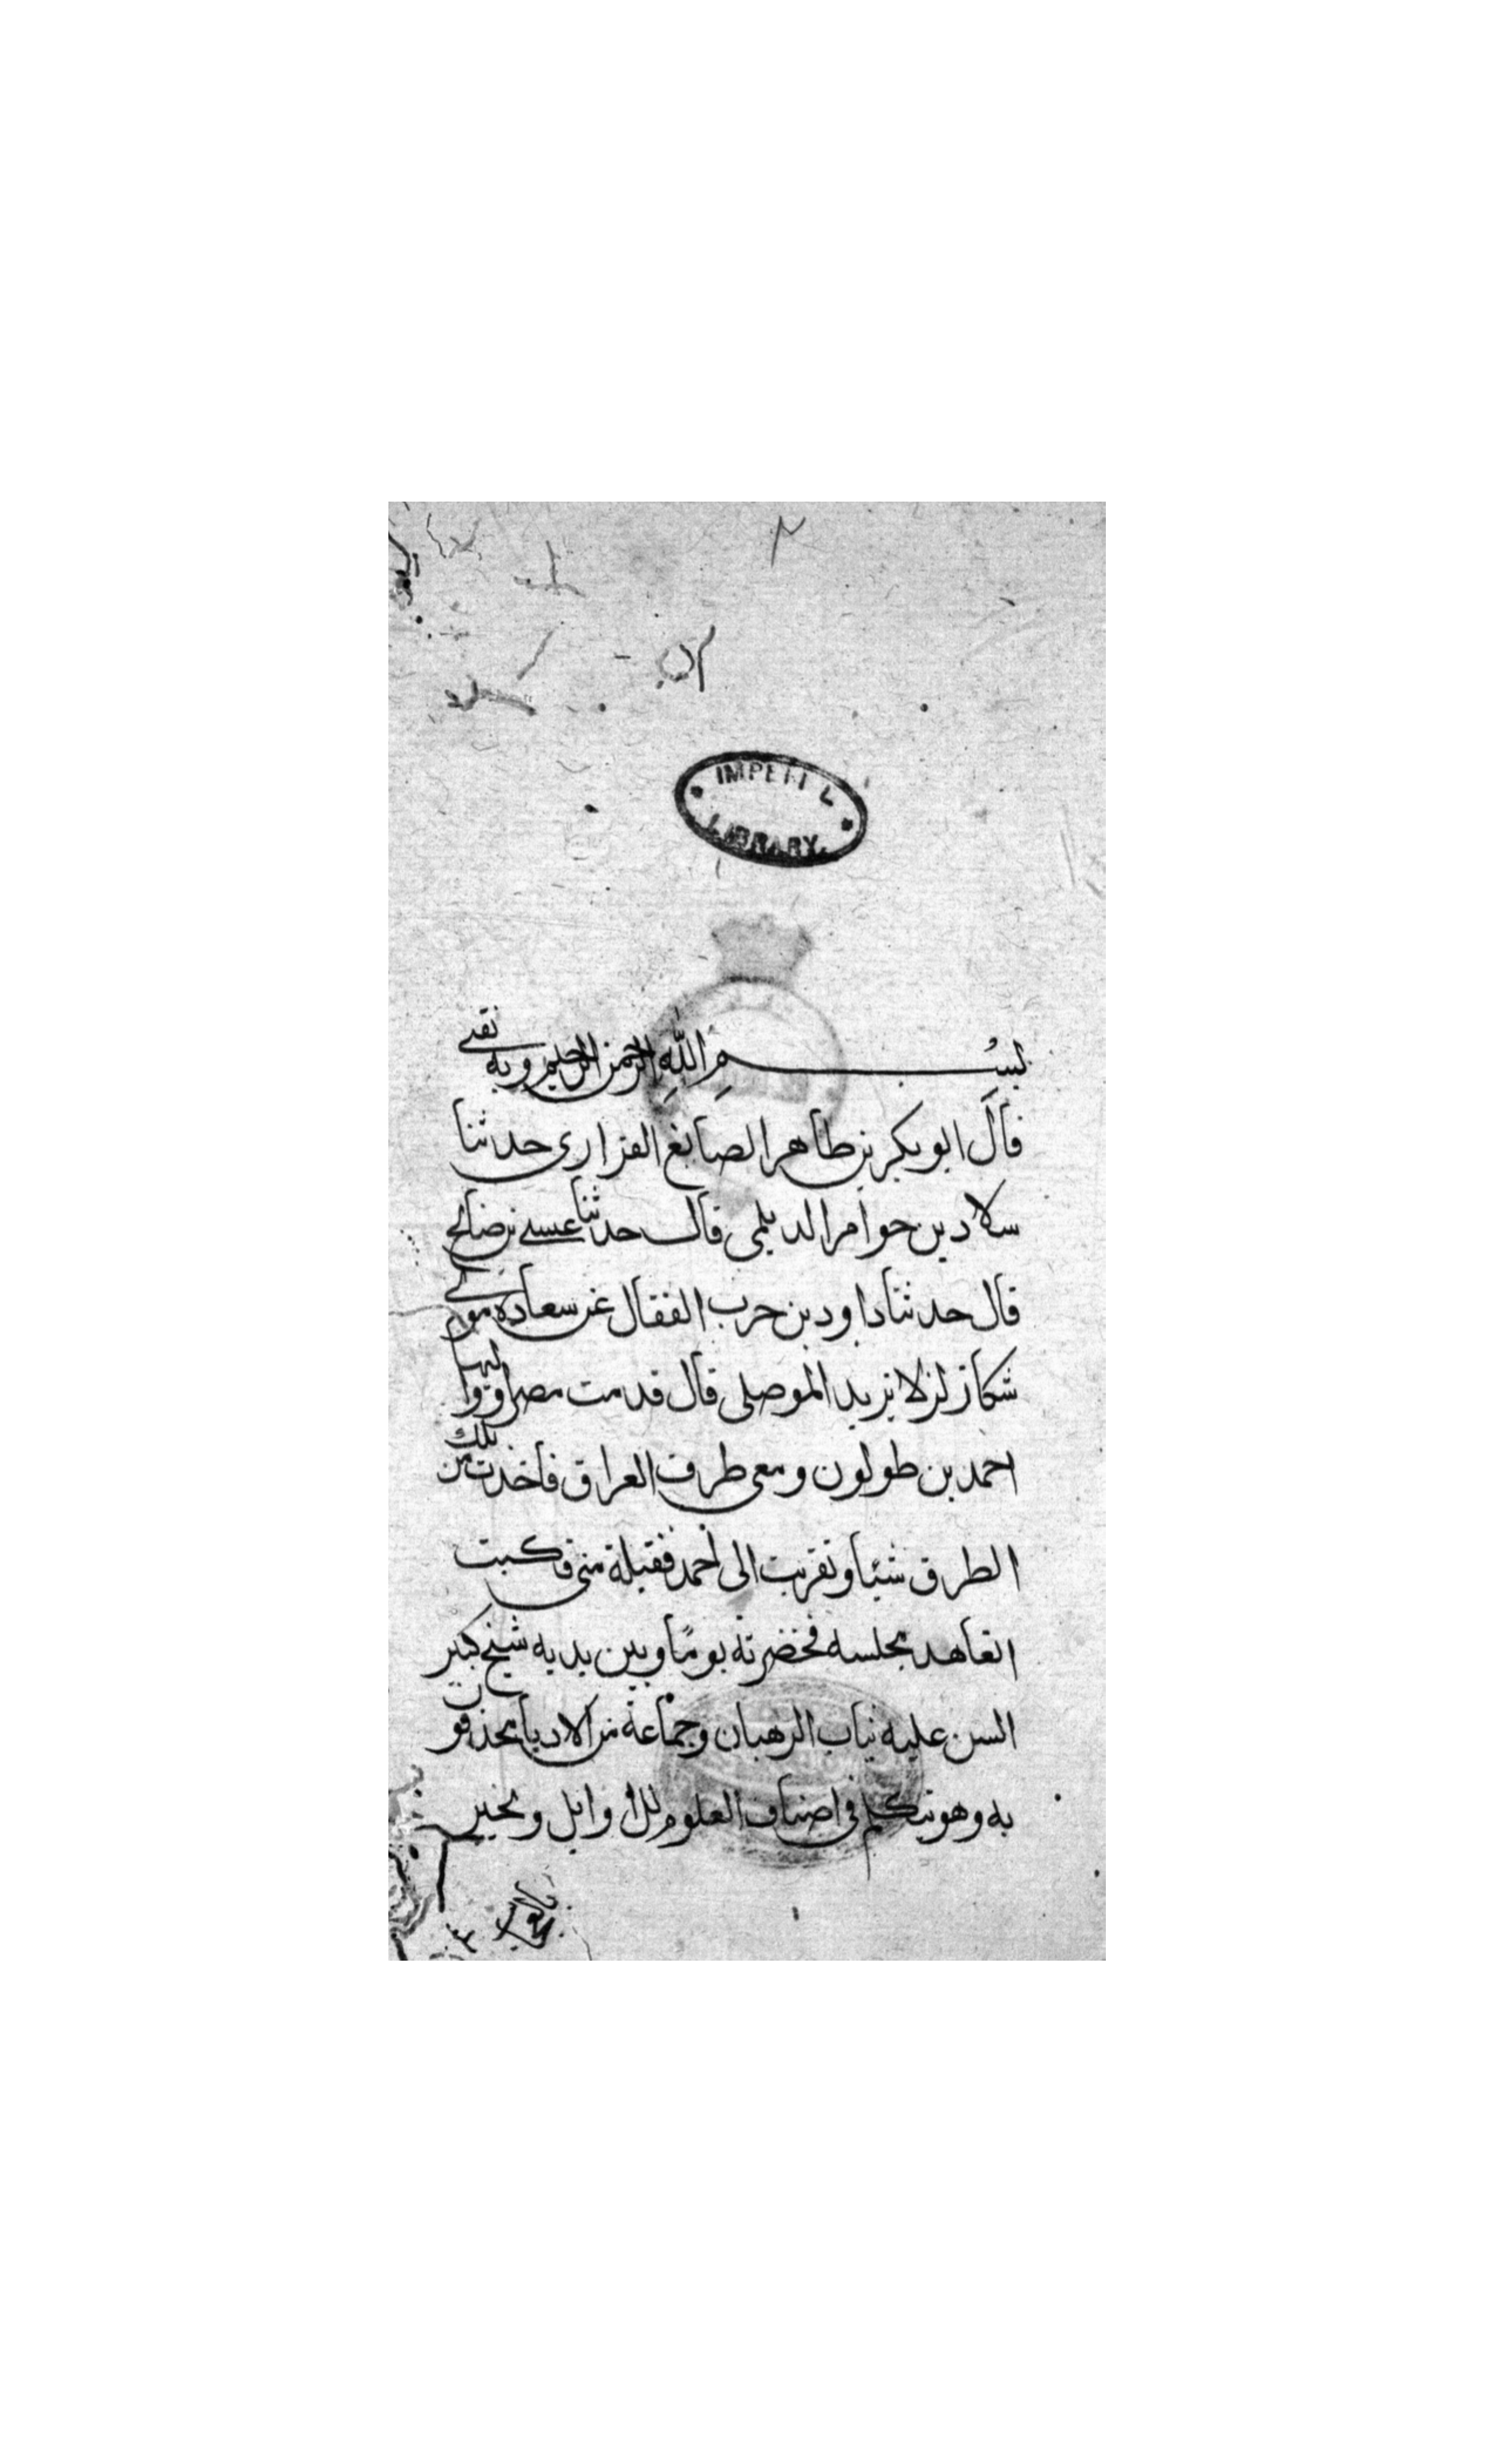 ٢
IMPERIAL
LIBRARY
بسم الله الرحمن الرحيم وبه ثقتي
قال ابو بكر بن طاهر الصايغ الفزاري حدثنا
سلاد بن حوامر الديلمي قال حدثنا عيسى بن صالح
قال حدثنا داود بن حرب القفال عن سعاده مولى
يزيد الموصلي قال قدمت مصر وواليها
احمد بن طولون ومعي طرف العراق فاخذت من تلك
الطرف شيئا وتقربت الى احمد فقبلة مني فاكسبت
اتعاهد مجلسه فحضرته يومًا وبين يديه شيخ كبير
السن عليه ثياب الرهبان وجماعة من الادبا يحدقون
به وهو يتكلم في اصناف العلوم للاوايل ويخبر